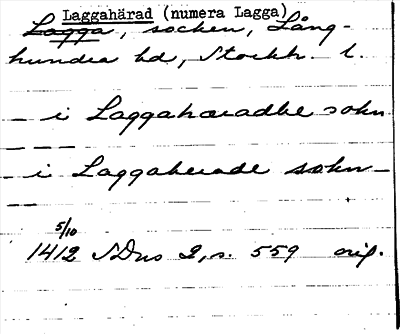 Laggahärad (numera Lagga)
Lagga, socken, Lång-
hundra hd, Stockh. l.
— i Laggahæradhe sokn
— — —
— i Laggaherade sokn —
— —
5/10
1412 SDns 2, s. 559 orig.